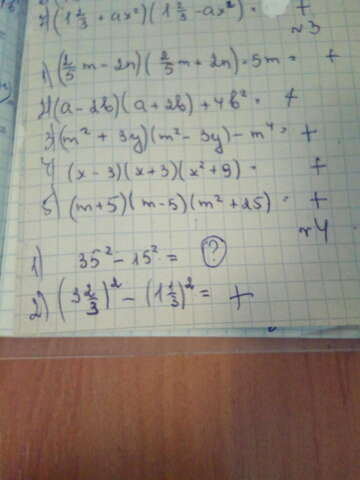 7) (1 2/3 + ax²)(1 2/3 - ax²) = +
n 3
1) (2/5 m - 2n)(2/5 m + 2n) · 5m = +
2) (a - 2b)(a + 2b) + 4b² = +
3) (m² + 3y)(m² - 3y) - m⁴ = +
4) (x - 3)(x + 3)(x² + 9) = +
5) (m + 5)(m - 5)(m² + 25) = +
n 4
1) 35² - 15² = ?
2) (3 2/3)² - (1 1/3)² = +